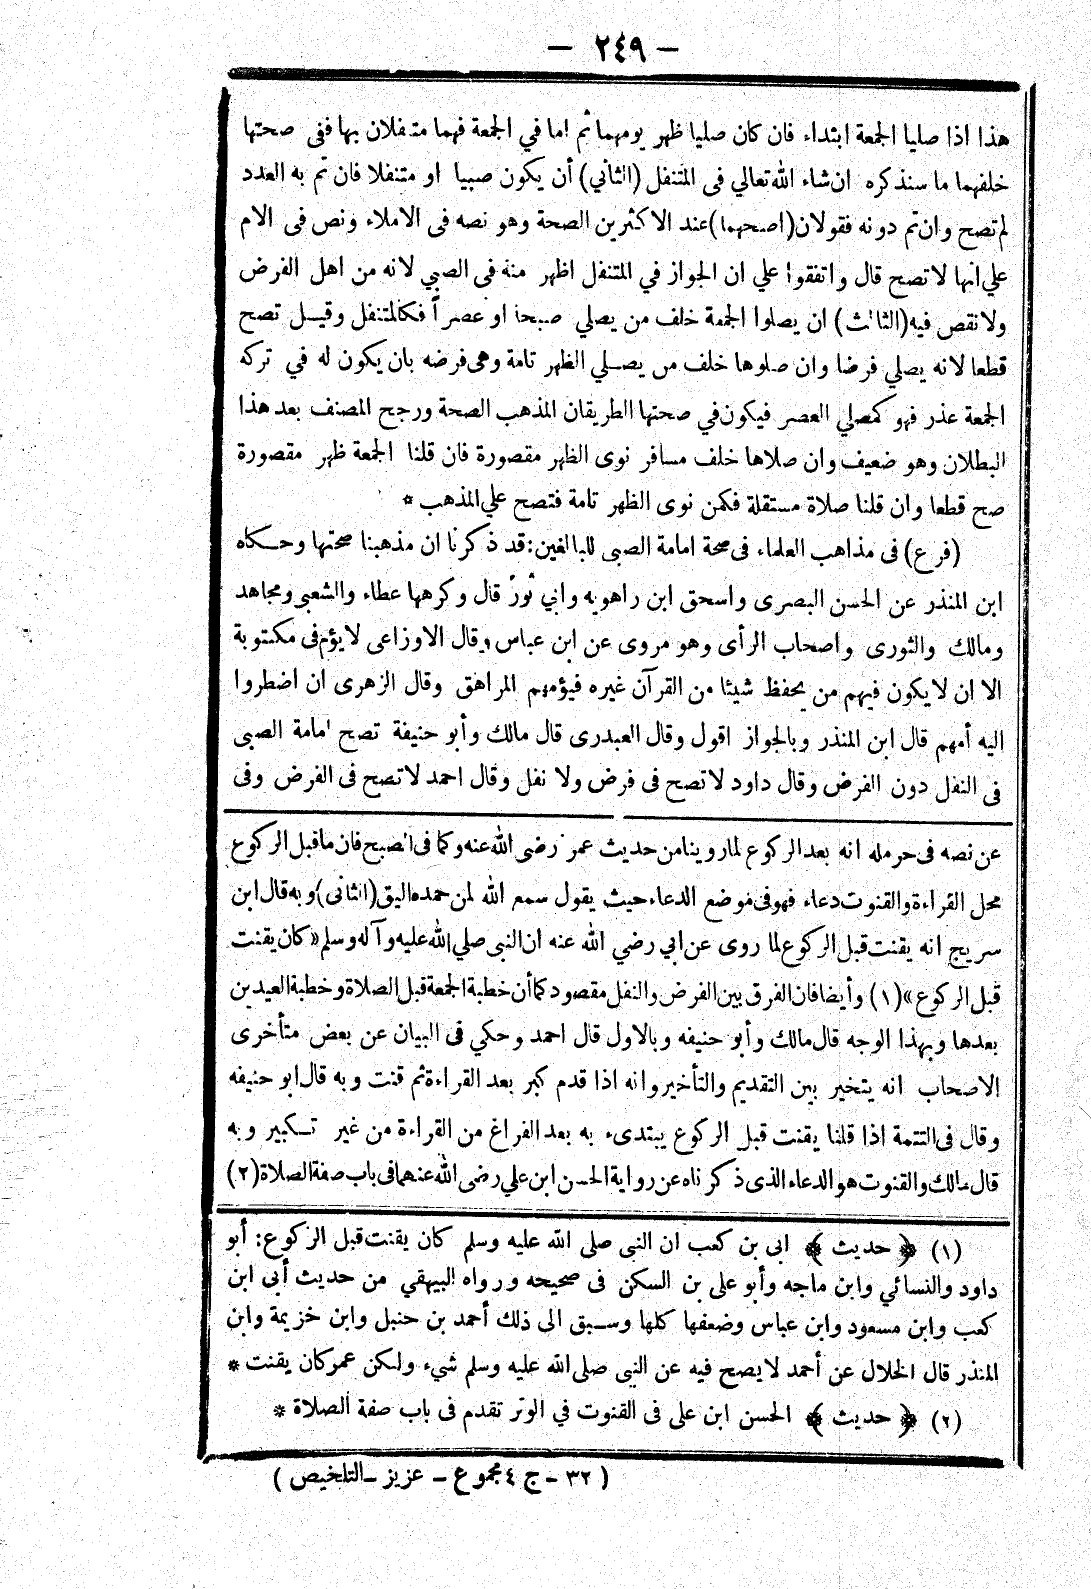 — ٢٤٩ —
هذا اذا صليا الجمعة ابتداء فان كان صليا ظهر يومهما ثم اما في الجمعة فهما متنفلان بها ففي صحتها
خلفهما ما سنذكره ان شاء الله تعالي فى المتنفل (الثاني) أن يكون صبيا او متنفلا فان تم به العدد
لم تصح وان تم دونه فقولان (اصحهما) عند الاكثرين الصحة وهو نصه فى الاملاء ونص فى الام
علي انها لا تصح قال واتفقوا علي ان الجواز في المتنفل اظهر منه فى الصبي لانه من اهل الفرض
ولا نقص فيه (الثالث) ان يصلوا الجمعة خلف من يصلي صبحا او عصراً فكالمتنفل وقيل تصح
قطعا لانه يصلي فرضا وان صلوها خلف من يصلي الظهر تامة وهى فرضه بان يكون له في تركه
الجمعة عذر فهو كمصلي العصر فيكون في صحتها الطريقان المذهب الصحة ورجح المصنف بعد هذا
البطلان وهو ضعيف وان صلاها خلف مسافر نوى الظهر مقصورة فان قلنا الجمعة ظهر مقصورة
صح قطعا وان قلنا صلاة مستقلة فكمن نوى الظهر تامة فتصح علي المذهب *
(فرع) فى مذاهب العلماء فى صحة امامة الصبى للبالغين: قد ذكرنا ان مذهبنا صحتها وحكاه
ابن المنذر عن الحسن البصرى واسحق ابن راهويه وابي ثور قال وكرهها عطاء والشعبى ومجاهد
ومالك والثورى واصحاب الرأى وهو مروى عن ابن عباس وقال الاوزاعى لا يؤم فى مكتوبة
الا ان لا يكون فيهم من يحفظ شيئا من القرآن غيره فيؤمهم المراهق وقال الزهرى ان اضطروا
اليه أمهم قال ابن المنذر وبالجواز اقول وقال العبدرى قال مالك وأبو حنيفة تصح امامة الصبى
فى النفل دون الفرض وقال داود لا تصح فى فرض ولا نفل وقال احمد لا تصح فى الفرض وفى
عن نصه فى حرمله انه بعد الركوع لما روينا من حديث عمر رضى الله عنه وكما فى الصبح فان ما قبل الركوع
محل القراءة والقنوت دعاء فهو فى موضع الدعاء حيث يقول سمع الله لمن حمده اليق (الثانى) وبه قال ابن
سريج انه يقنت قبل الركوع لما روى عن ابي رضي الله عنه ان النبى صلي الله عليه وآله وسلم «كان يقنت
قبل الركوع» (١) وأيضا فان الفرق بين الفرض والنفل مقصود كما أن خطبة الجمعة قبل الصلاة وخطبة العيدين
بعدها وبهذا الوجه قال مالك وأبو حنيفه وبالاول قال احمد وحكي فى البيان عن بعض متأخرى
الاصحاب انه يتخير بين التقديم والتأخير وانه اذا قدم كبر بعد القراءة ثم قنت وبه قال ابو حنيفه
وقال فى التتمة اذا قلنا يقنت قبل الركوع يبتدىء به بعد الفراغ من القراءة من غير تكبير وبه
قال مالك والقنوت هو الدعاء الذى ذكرناه عن رواية الحسن ابن علي رضى الله عنهما فى باب صفة الصلاة (٢)
(١) ﴿حديث﴾ ابى بن كعب ان النبى صلى الله عليه وسلم كان يقنت قبل الركوع: أبو
داود والنسائي وابن ماجه وأبو على بن السكن فى صحيحه ورواه البيهقي من حديث أبى ابن
كعب وابن مسعود وابن عباس وضعفها كلها وسبق الى ذلك أحمد بن حنبل وابن خزيمة وابن
المنذر قال الخلال عن أحمد لا يصح فيه عن النبى صلى الله عليه وسلم شيء ولكن عمر كان يقنت *
(٢) ﴿حديث﴾ الحسن ابن على فى القنوت في الوتر تقدم فى باب صفة الصلاة *
(٣٢ - ج ٤ مجموع - عزيز - التلخيص)